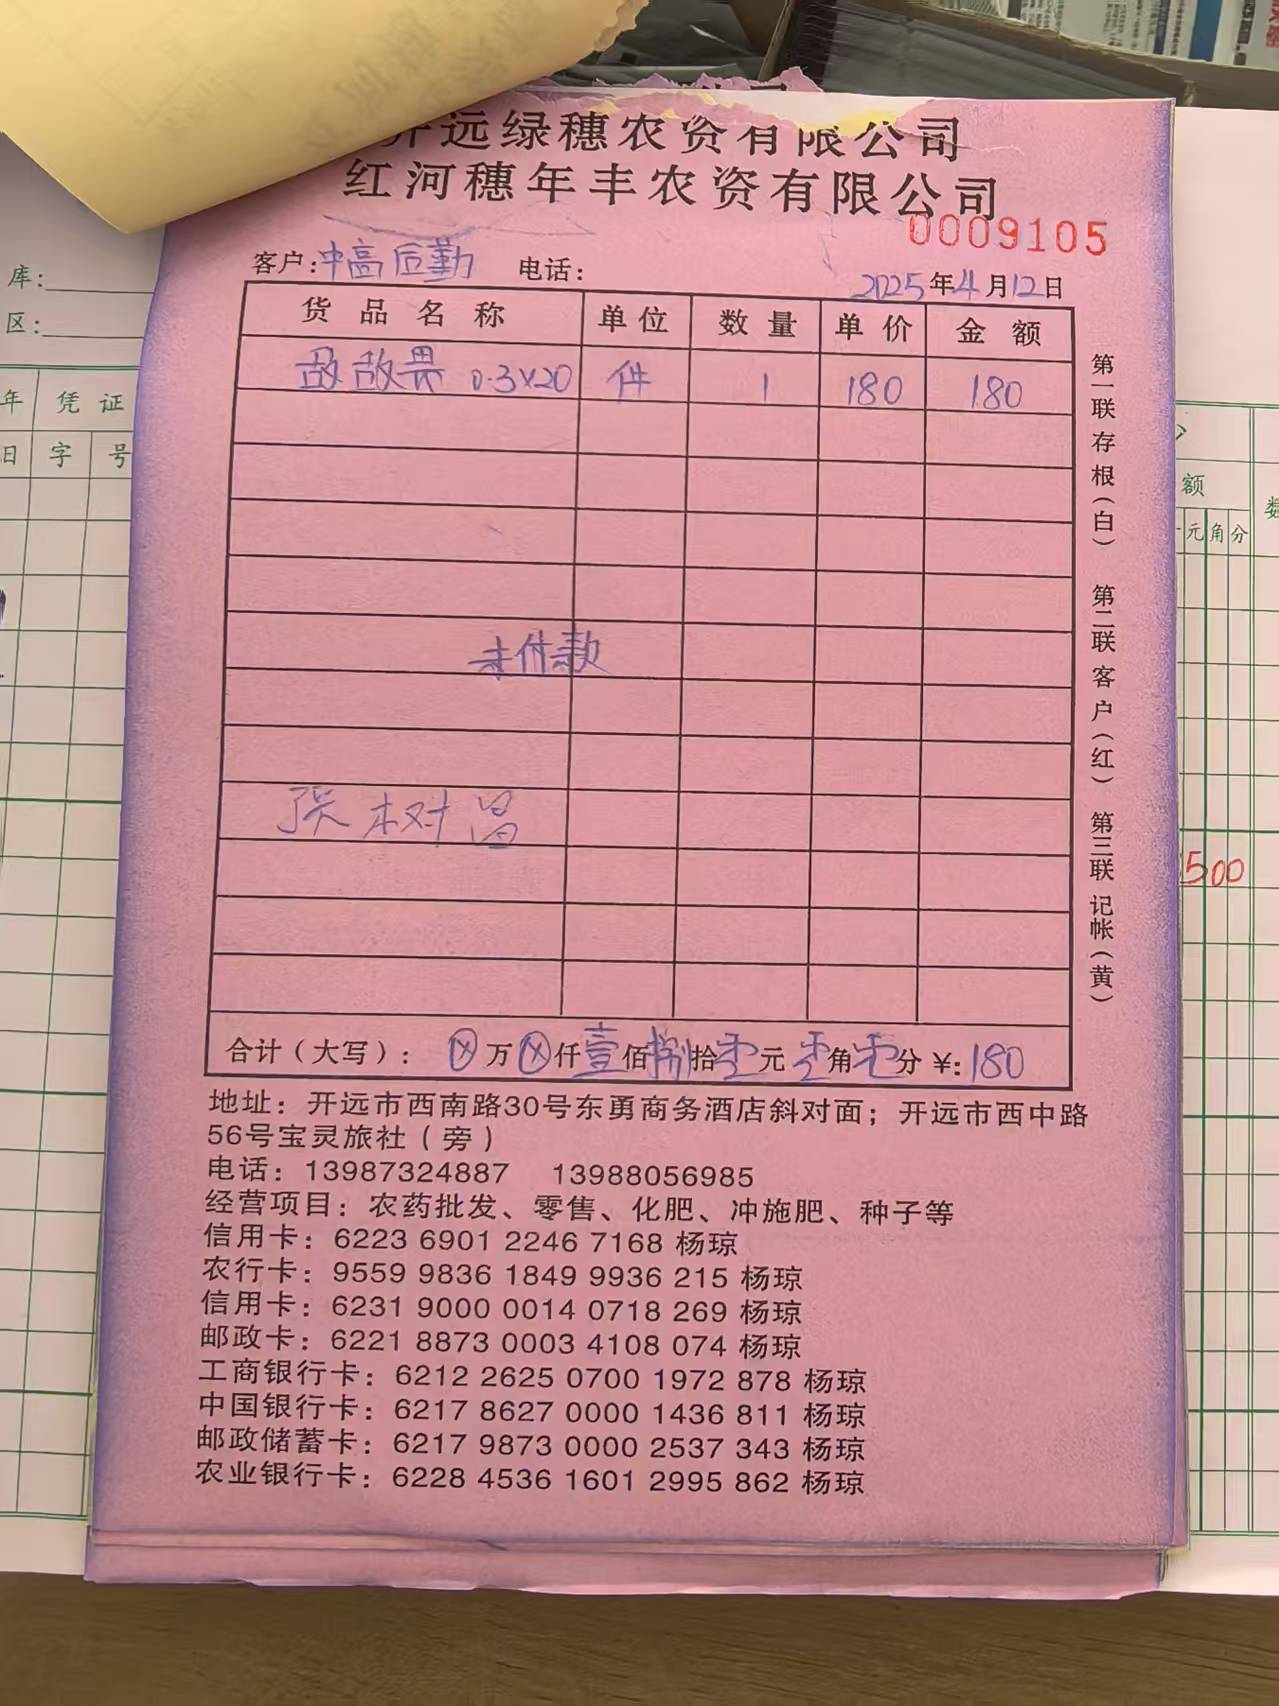 开远绿穗农资有限公司
红河穗年丰农资有限公司
0009105
客户:中高后勤 电话: 2025年4月12日
货品名称 单位 数量 单价 金额
敌敌畏 0.3×20 件 1 180 180
未付款
张树昌
合计（大写）: ⊗万⊗仟壹佰捌拾零元零角零分 ¥:180
第一联存根（白） 第二联客户（红） 第三联记帐（黄）
地址：开远市西南路30号东勇商务酒店斜对面；开远市西中路
56号宝灵旅社（旁）
电话：13987324887 13988056985
经营项目：农药批发、零售、化肥、冲施肥、种子等
信用卡：6223 6901 2246 7168 杨琼
农行卡：9559 9836 1849 9936 215 杨琼
信用卡：6231 9000 0014 0718 269 杨琼
邮政卡：6221 8873 0003 4108 074 杨琼
工商银行卡：6212 2625 0700 1972 878 杨琼
中国银行卡：6217 8627 0000 1436 811 杨琼
邮政储蓄卡：6217 9873 0000 2537 343 杨琼
农业银行卡：6228 4536 1601 2995 862 杨琼
库:
区:
年 凭证
日 字 号
额
元角分
数
500